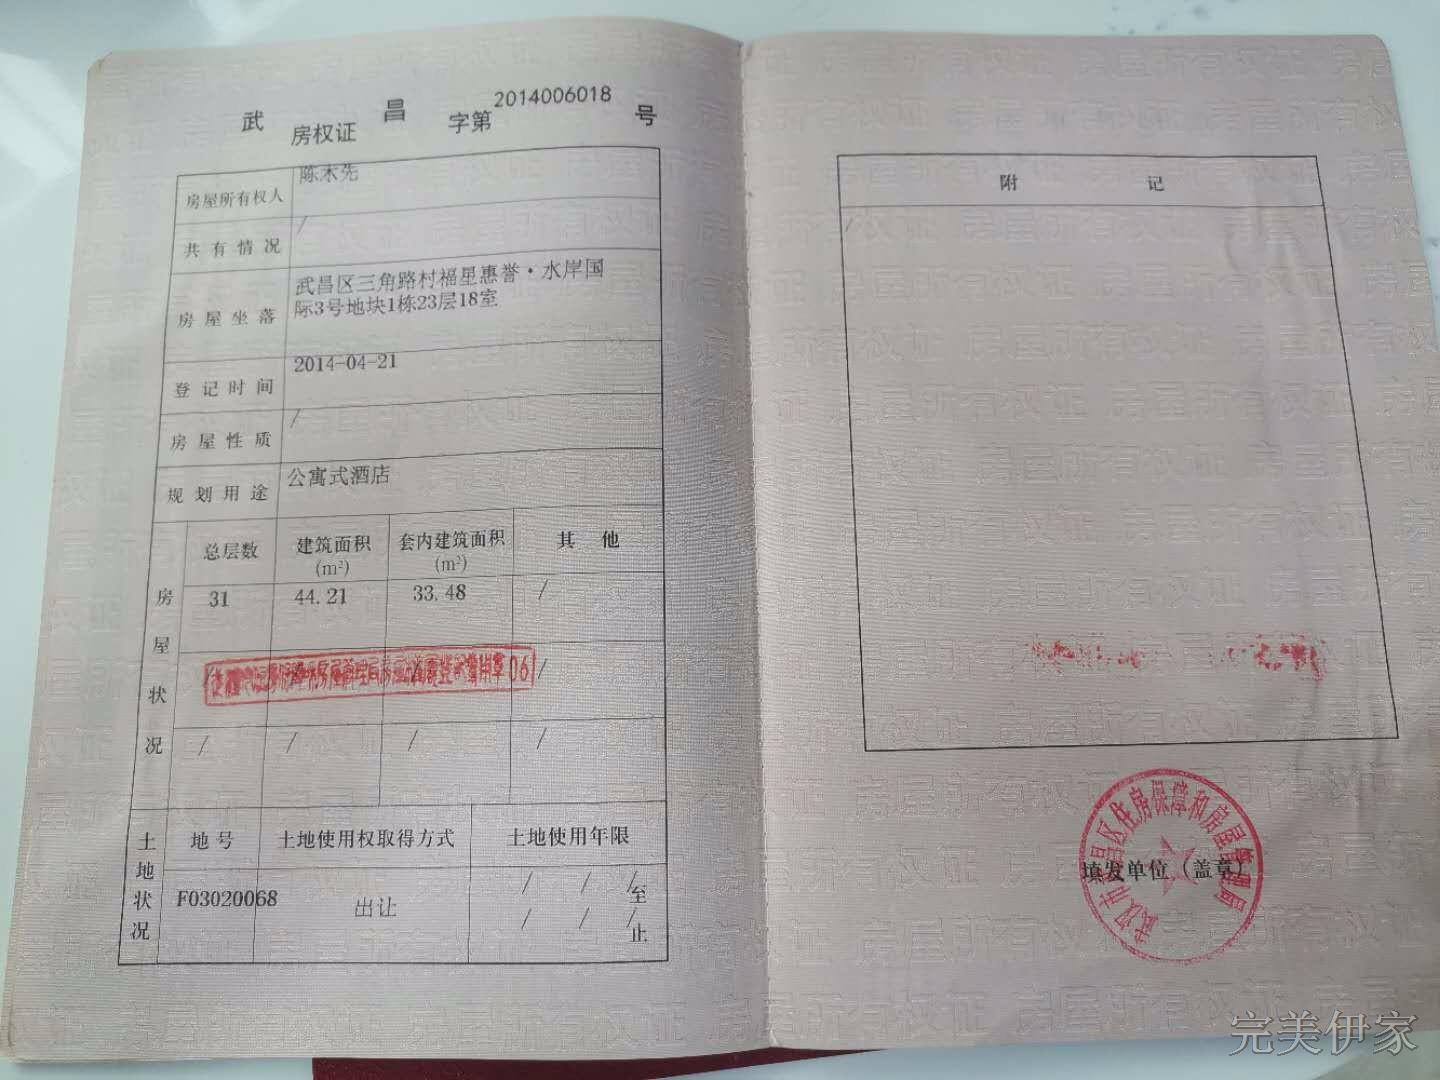 武昌房权证字第2014006018号
房屋所有权人 陈木先
共有情况 /
房屋坐落 武昌区三角路村福星惠誉·水岸国
际3号地块1栋23层18室
登记时间 2014-04-21
房屋性质 /
规划用途 公寓式酒店
房屋状况
总层数 建筑面积(m²) 套内建筑面积(m²) 其他
31 44.21 33.48 /
/
/ / / /
土地状况
地号 土地使用权取得方式 土地使用年限
F03020068 出让 / / / 至
/ / / 止
附记
/
武汉市武昌区住房保障和房屋管理局
填发单位（盖章）
完美伊家